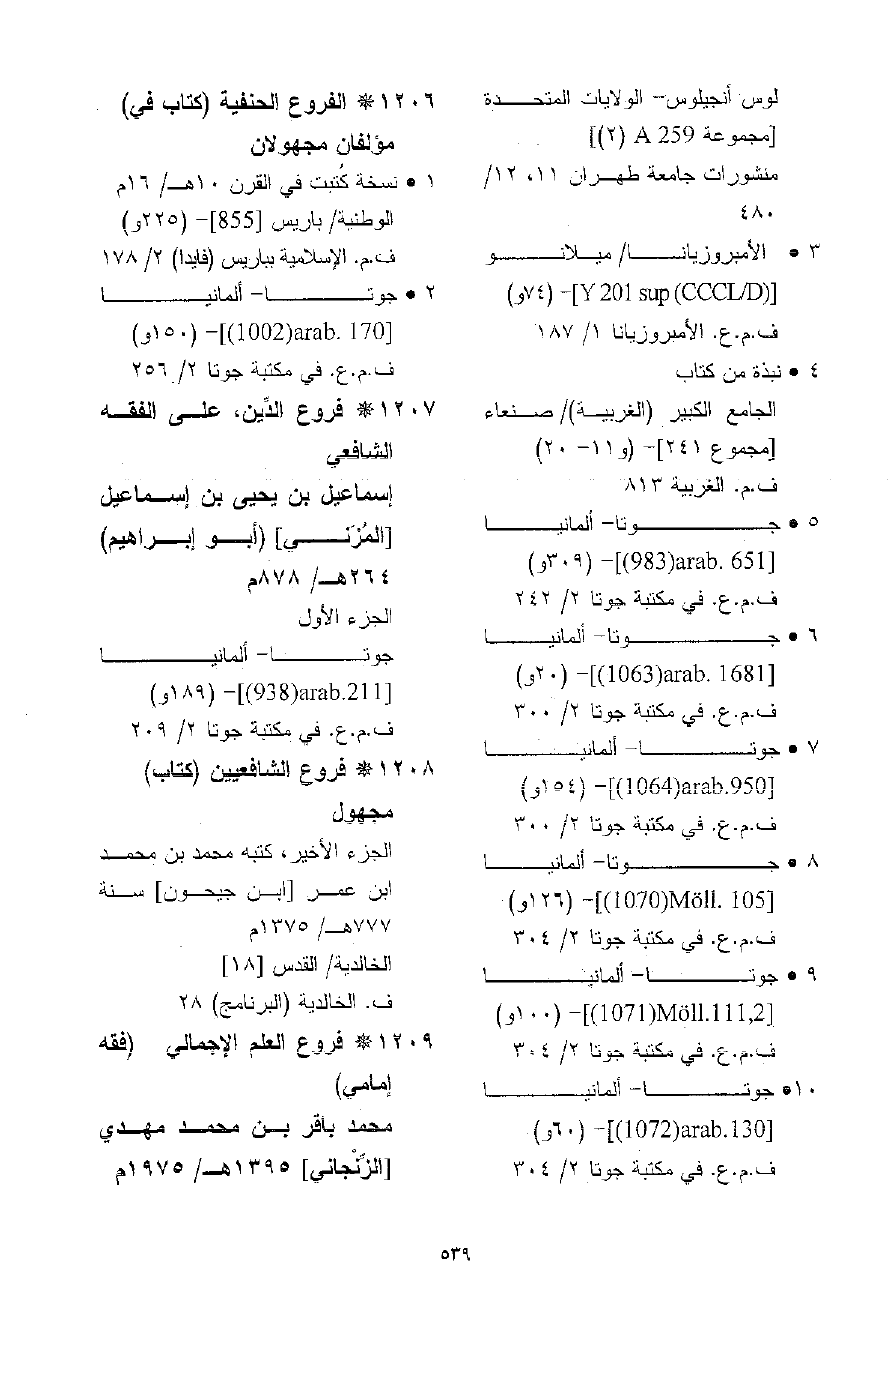 لوس أنجيلوس- الولايات المتحدة
[مجموعة A 259 (٢)]
منشورات جامعة طهران ١١، ١٢/
٤٨٠
٣ • الأمبروزيانا/ ميلانو
[Y 201 sup (CCCL/D)]- (٧٤و)
ف.م.ع. الأمبروزيانا ١/ ١٨٧
٤ • نبذة من كتاب
الجامع الكبير (الغربية)/ صنعاء
[مجموع ٢٤١]- (و١١- ٢٠)
ف.م. الغربية ٨١٣
٥ • جوتا- ألمانيا
[983)arab. 651)]- (٣٠٩و)
ف.م.ع. في مكتبة جوتا ٢/ ٢٤٢
٦ • جوتا- ألمانيا
[1063)arab. 1681)]- (٢٠و)
ف.م.ع. في مكتبة جوتا ٢/ ٣٠٠
٧ • جوتا- ألمانيا
[1064)arab.950)]- (١٥٤و)
ف.م.ع. في مكتبة جوتا ٢/ ٣٠٠
٨ • جوتا- ألمانيا
[1070)Möll. 105)]- (١٢٦و)
ف.م.ع. في مكتبة جوتا ٢/ ٣٠٤
٩ • جوتا- ألمانيا
[1071)Möll.111,2)]- (١٠٠و)
ف.م.ع. في مكتبة جوتا ٢/ ٣٠٤
١٠• جوتا- ألمانيا
[1072)arab.130)]- (٦٠و)
ف.م.ع. في مكتبة جوتا ٢/ ٣٠٤
١٢٠٦* الفروع الحنفية (كتاب في)
مؤلفان مجهولان
١ • نسخة كُتبت في القرن ١٠هـ/ ١٦م
الوطنية/ باريس [855]- (٢٢٥و)
ف.م. الإسلامية بباريس (فايدا) ٢/ ١٧٨
٢ • جوتا- ألمانيا
[1002)arab. 170)]- (١٥٠و)
ف.م.ع. في مكتبة جوتا ٢/ ٢٥٦
١٢٠٧* فروع الدِّين، على الفقه
الشافعي
إسماعيل بن يحيى بن إسماعيل
[المُزَني] (أبو إبراهيم)
٢٦٤هـ/ ٨٧٨م
الجزء الأول
جوتا- ألمانيا
[938)arab.211)]- (١٨٩و)
ف.م.ع. في مكتبة جوتا ٢/ ٢٠٩
١٢٠٨* فروع الشافعيين (كتاب)
مجهول
الجزء الأخير، كتبه محمد بن محمد
ابن عمر [ابن جيحون] سنة
٧٧٧هـ/ ١٣٧٥م
الخالدية/ القدس [١٨]
ف. الخالدية (البرنامج) ٢٨
١٢٠٩* فروع العلم الإجمالي (فقه
إمامي)
محمد باقر بن محمد مهدي
[الزَّنْجاني] ١٣٩٥هـ/ ١٩٧٥م
٥٣٩